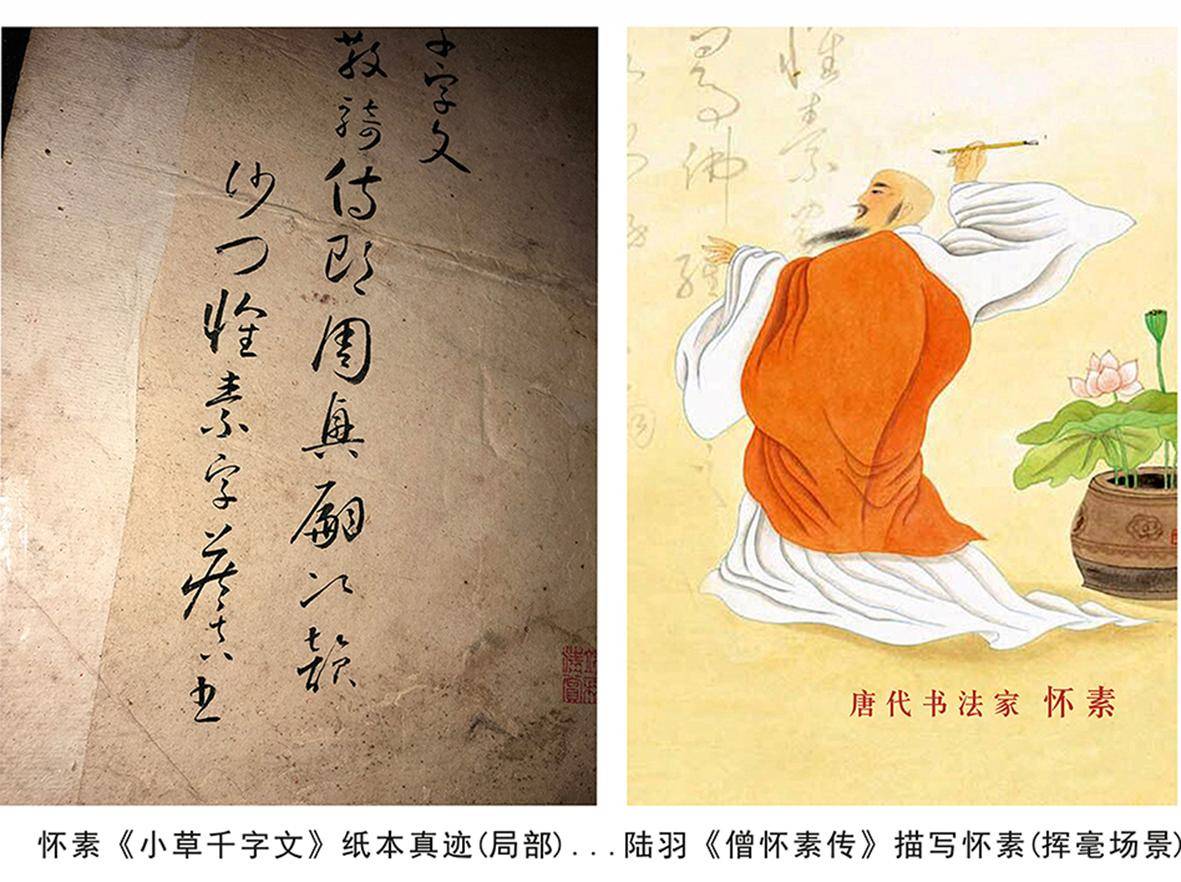 千字文
散騎侍郎周興嗣次韻
沙門懷素字藏真書
懷素家
佛經
唐代书法家 怀素
怀素《小草千字文》纸本真迹(局部)...陆羽《僧怀素传》描写怀素(挥毫场景)